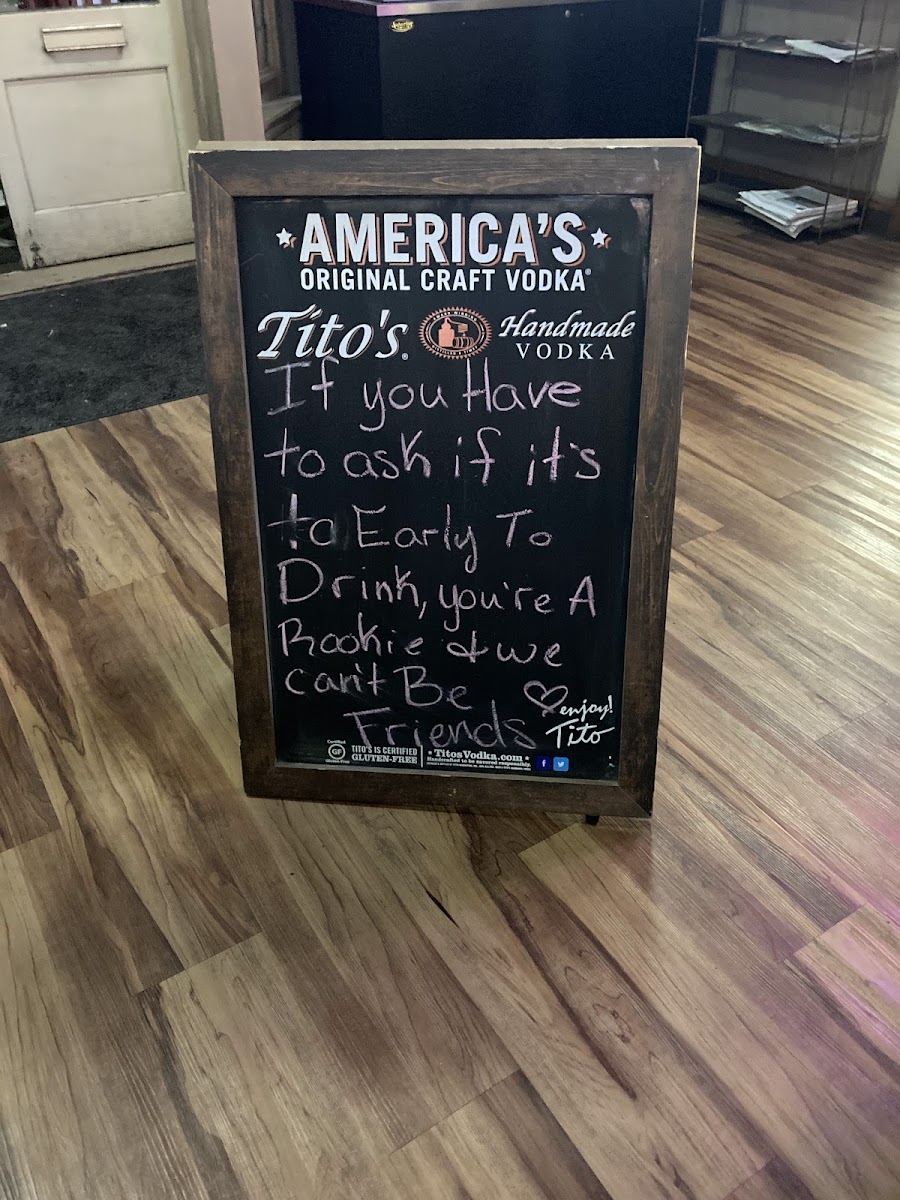 AMERICA'S
ORIGINAL CRAFT VODKA®
Tito's® Handmade
VODKA
If you Have
to ask if it's
to Early To
Drink, you're A
Rookie & we
can't Be
Friends
enjoy!
Tito
Certified
GF
Gluten-Free
TITO'S IS CERTIFIED
GLUTEN-FREE
TitosVodka.com
Handcrafted to be savored responsibly.